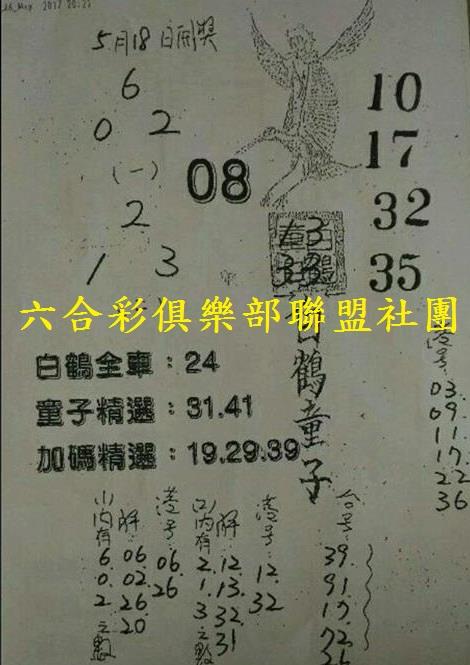 May 2017 20:21
5月18日開獎
6
0 2
(一)
2
1 3
08
10
17
32
35
13
33
六合彩俱樂部聯盟社團
白鶴童子
白鶴全車：24
童子精選：31.41
加碼精選：19.29.39
03.
09
11
17
22
36
(一)內有
6
0
2
之數
解
06.
02.
26
20
港号
06
26
(二)內有
2
1
3
之數
解
12
13
32
31
港号
12
32
台号
39
91
17
72